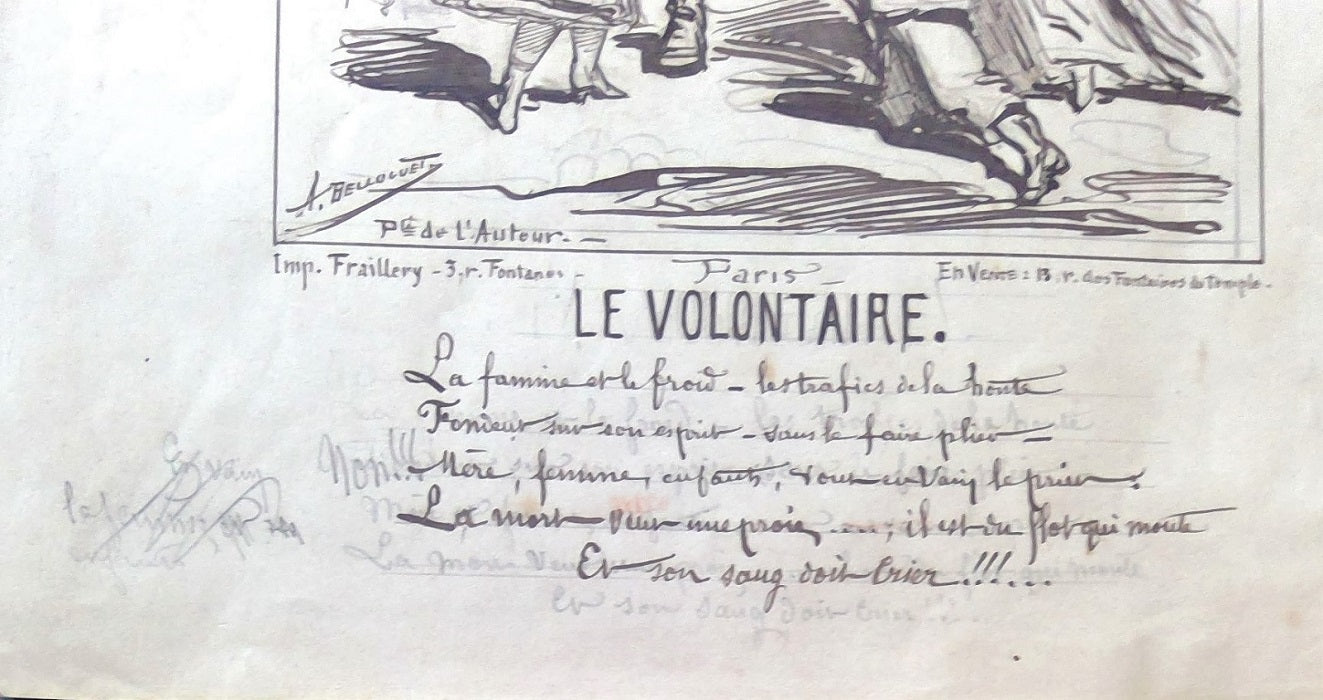 A. BELLOGUET
Pté de L'Auteur. —
Imp. Fraillery - 3, r. Fontanes -
Paris —
En Vente : 13, r. des Fontaines du Temple -
LE VOLONTAIRE.
La famine et le froid — les trafics de la honte
Fondent sur son esprit — sans le faire plier —
Non!!! Mère, femme, enfants, vont en Vain le prier
La mort veut une proie ....; il est du flot qui monte
Et son sang doit Crier !!!...
En vain
la femme
enfants
La mort veu qui monte
et son sang doit Crier !!...